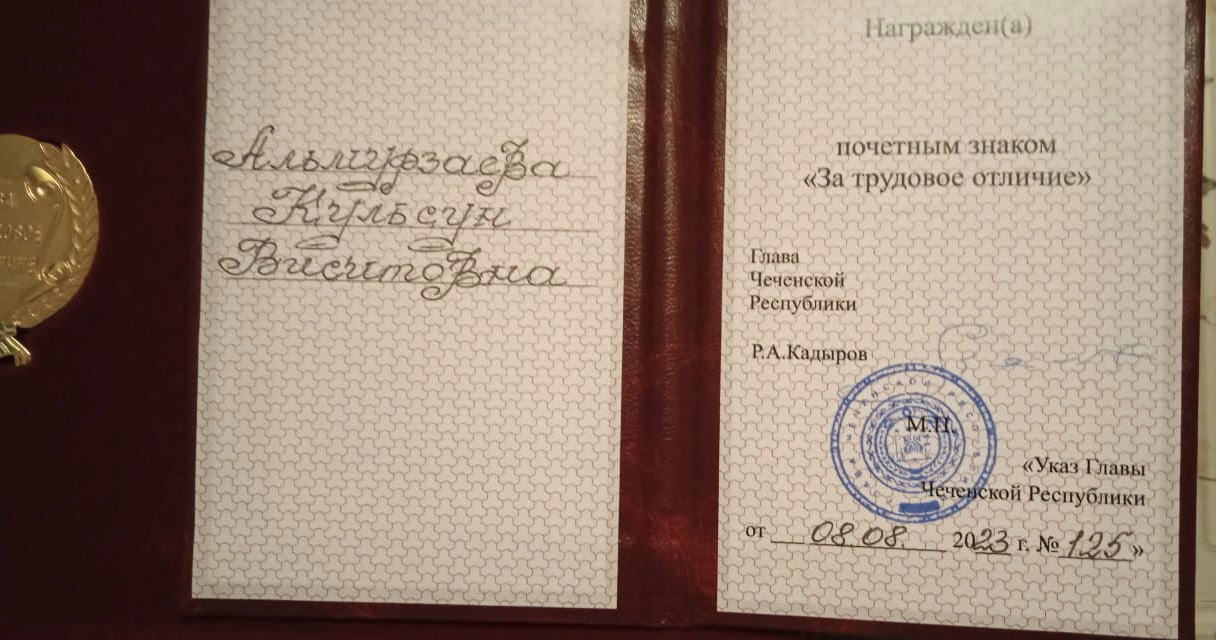 Альмурзаева
Кульсун
Виситовна
Награжден(а)
почетным знаком
«За трудовое отличие»
Глава
Чеченской
Республики
Р.А.Кадыров
М.П.
«Указ Главы
Чеченской Республики
от 08.08. 2023 г. № 125»